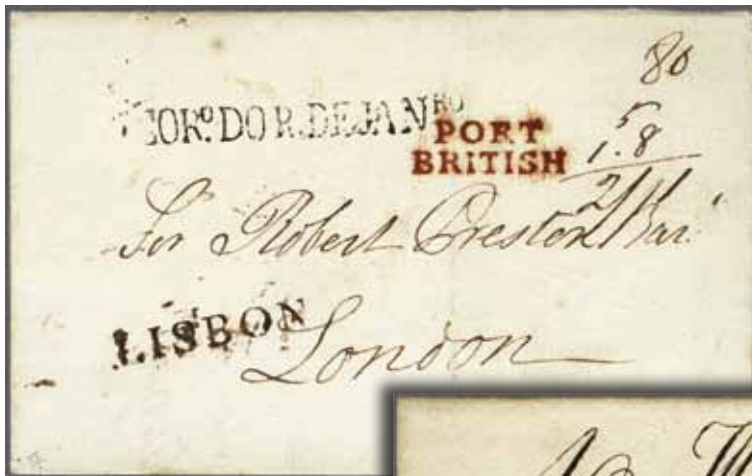 80
CORº.DO R.DE JANRO
PORT
BRITISH
5
1.8
2/1
Sir Robert Preston Bar.ᵗ
LISBON
London